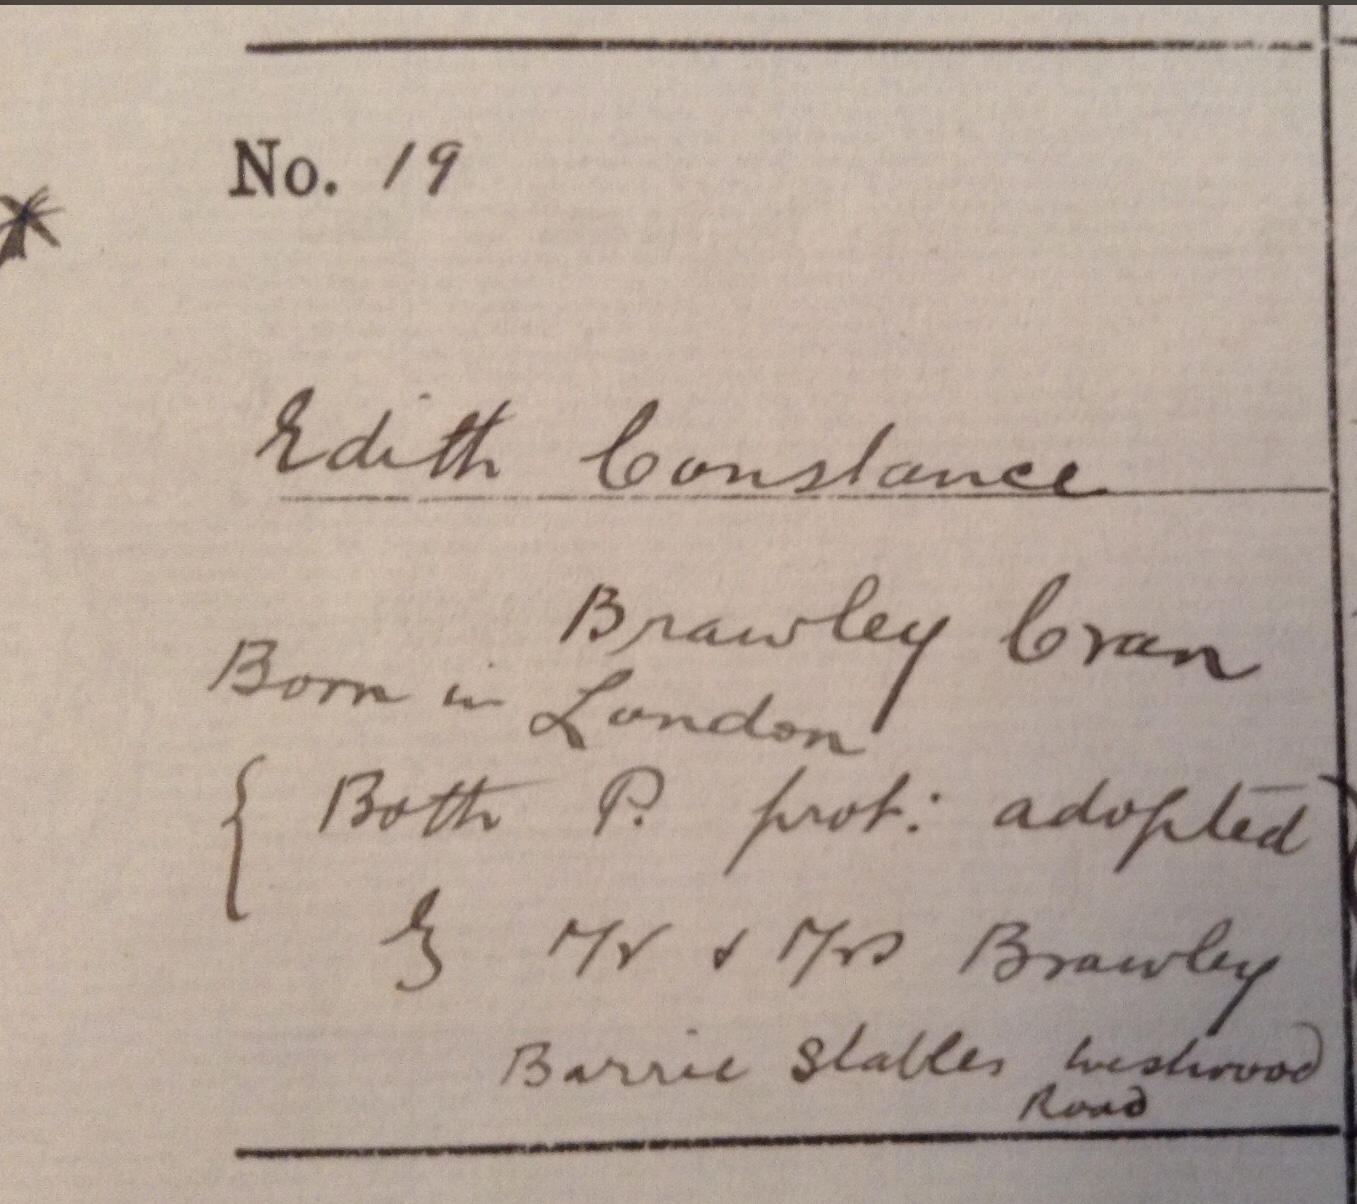 No. 19
Edith Constance
Brawley Cran
Born in London
Both P. prot: adopted
by Mr & Mrs Brawley
Barrie Stables Westwood
Road